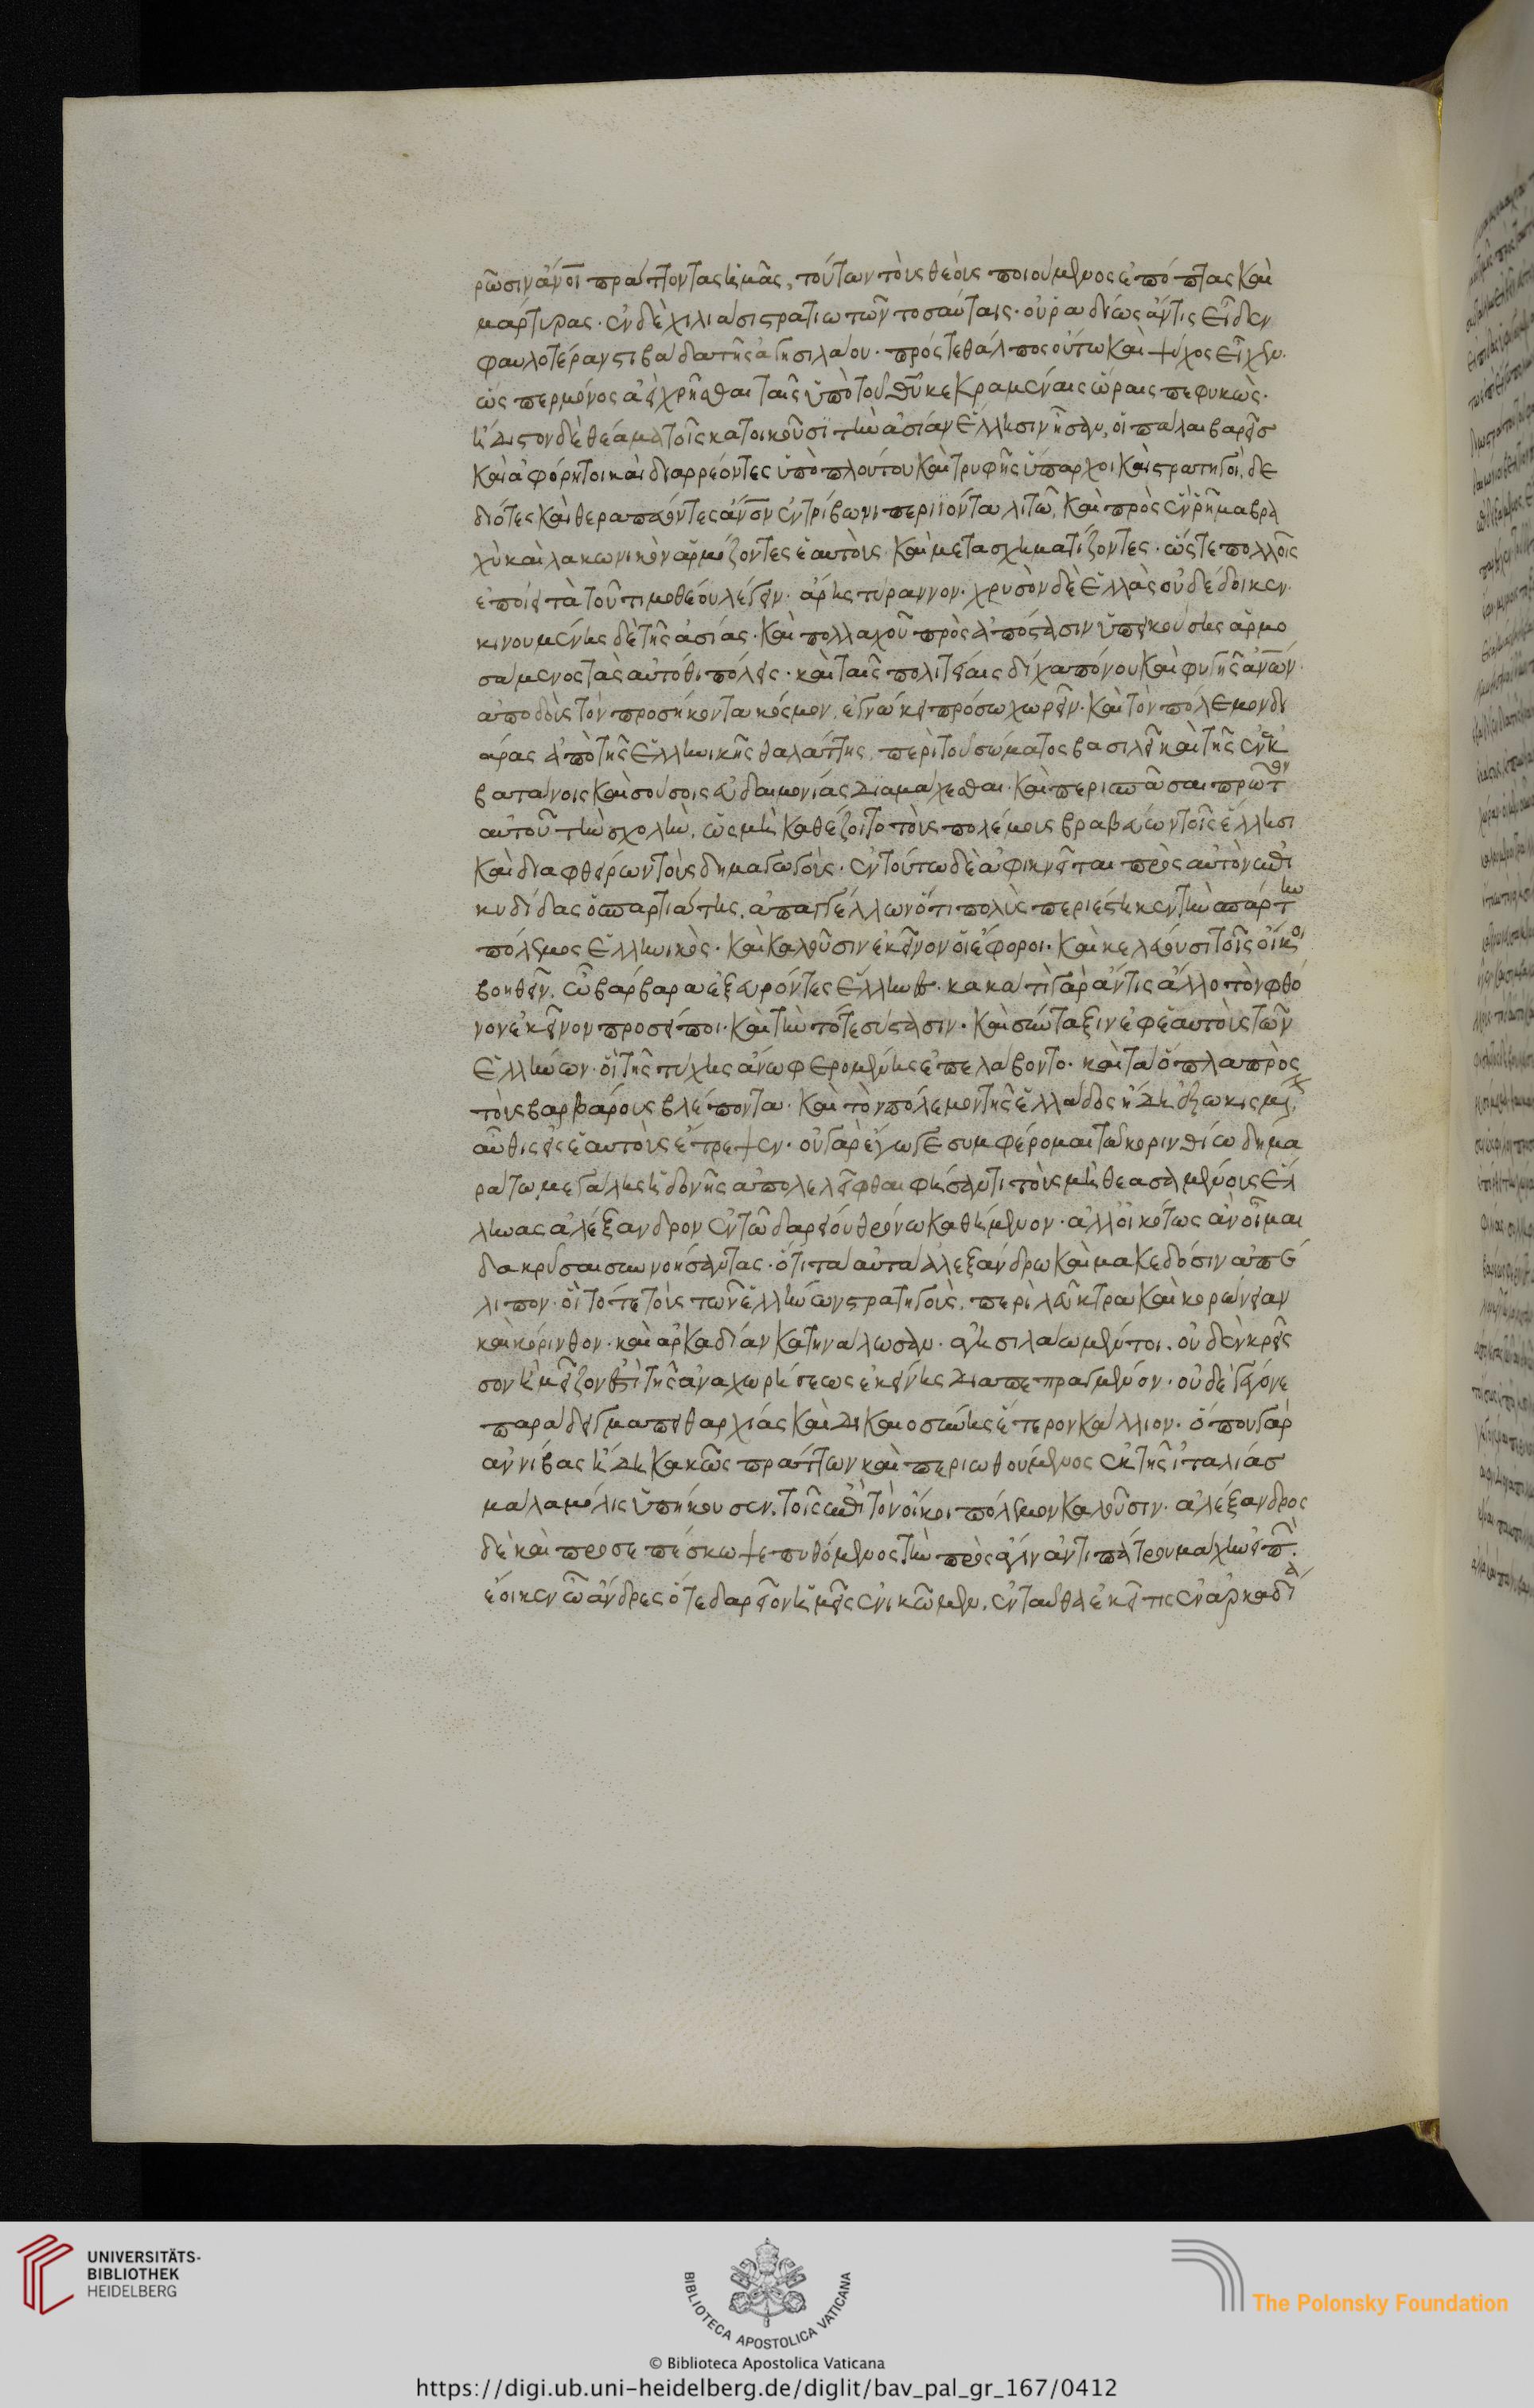 ρῶσιν ἄν̅οι πράττοντας ἡμᾶς, τούτων τοὺς θεοὺς ποιούμενος ἐπόπτας καὶ
μάρτυρας. ἐν δὲ χιλιάσι στρατιωτῶν τοσαύταις. οὐ ῥαδίως ἄν τις εἶδεν
φαυλοτέραν στιβάδα τῆς ἀγησιλάου. πρός τε θάλπος οὕτω καὶ ψύχος εἶχεν.
ὥσπερ μόνος ἀεὶ χρῆσθαι ταῖς ὑπὸ τοῦ θ̅υ κεκραμέναις ὥραις πεφυκώς.
ἥδιστον δὲ θέαμα τοῖς κατοικοῦσι τὴν ἀσίαν ἕλλησιν ἦσαν, οἱ πάλαι βαρεῖσ
καὶ ἀφόρητοι καὶ διαρρέοντες ὑπὸ πλούτου καὶ τρυφῆς ὕπαρχοι καὶ στρατηγοί, δε
διότες καὶ θεραπεύοντες ἄν̅ον ἐν τρίβωνι περιϊόντα λιτῷ, καὶ πρὸς ἓν ῥῆμα βρα
χὺ καὶ λακωνικὸν ἁρμόζοντες ἑαυτοὺς καὶ μετασχηματίζοντες. ὥστε πολλοῖς
ἐπῄει τὰ τοῦ τιμοθέου λέγειν. ἄρης τύραννον. χρυσὸν δὲ ἑλλὰς οὐ δέδοικεν.
κινουμένης δὲ τῆς ἀσίας. καὶ πολλαχοῦ πρὸς ἀπόστασιν ὑπεικούσης ἁρμο
σάμενος τὰς αὐτόθι πόλεις. καὶ ταῖς πολιτείαις δίχα πόνου καὶ φυγῆς ἀν̅ων.
ἀποδοὺς τὸν προσήκοντα κόσμον, ἐγνώκει πρόσω χωρεῖν. καὶ τὸν πόλεμον δι
άρας ἀπὸ τῆς ἑλληνικῆς θαλάττης, περὶ τοῦ σώματος βασιλεῖ καὶ τῆς ἐν ἐκ
βατάνοις καὶ σούσοις εὐδαιμονίας διαμάχεσθαι. καὶ περισπᾶσαι πρῶτον
αὐτοῦ τὴν σχολὴν, ὡς μὴ καθέζοιτο τοὺς πολέμους βραβεύων τοῖς ἕλλησι
καὶ διαφθείρων τοὺς δημαγωγούς. ἐν τούτω δὲ ἀφικνεῖται πρὸς αὐτὸν ἐπι
κυδίδας ὁ σπαρτιάτης, ἀπαγγέλλων ὅτι πολὺς περιέστηκεν τὴν σπάρτην
πόλεμος ἑλληνικός. καὶ καλοῦσιν ἐκεῖνον οἱ ἔφοροι. καὶ κελεύουσι τοῖς οἴκοι
βοηθεῖν. ὦ βάρβαρα ἐξευρόντες ἕλληνες κακά τί γὰρ ἄν τις ἄλλο τὸν φθό
νον ἐκεῖνον προσείποι. καὶ τὴν τότε σύστασιν. καὶ σύνταξιν ἐφ ἑαυτοὺς τῶν
ἑλλήνων. οἳ τῆς τύχης ἄνω φερομένης ἐπελάβοντο. καὶ τὰ ὅπλα πρὸς
τοὺς βαρβάρους βλέποντα. καὶ τὸν πόλεμον τῆς ἑλλάδος ἤδη ἐξωκισμένον
αὖθις εἰς ἑαυτοὺς ἔτρεψεν. οὐ γὰρ ἔγωγε συμφέρομαι τῷ κορινθίῳ δημα
ράτῳ μεγάλης ἡδονῆς ἀπολελεῖφθαι φήσαντι τοὺς μὴ θεασαμένους ἕλ
ληνας ἀλέξανδρον ἐν τῷ δαρείου θρόνῳ καθήμενον. ἀλλ οἰκότως ἂν οἶμαι
δακρῦσαι συννοήσαντας. ὅτι ταῦτα ἀλεξάνδρῳ καὶ μακεδόσιν ἀπέ
λιπον. οἳ τότε τοὺς τῶν ἑλλήνων στρατηγοὺς, περὶ λεῦκτρα καὶ κορώνειαν
καὶ κόρινθον. καὶ ἀρκαδίαν κατηνάλωσαν. ἀγησιλάῳ μέντοι. οὐδὲν κρεῖς
σον ἢ μεῖζον ἐστὶ τῆς ἀναχωρήσεως ἐκείνης διαπεπραγμένον. οὐδὲ γέγονε
παράδειγμα πειθαρχίας καὶ δικαιοσύνης ἕτερον κάλλιον. ὅπου γὰρ
ἀννίβας ἤδη κακῶς πράττων καὶ περιωθούμενος ἐκ τῆς ἰταλίασ
μάλα μόλις ὑπήκουσεν. τοῖς ἐπὶ τὸν οἴκοι πόλεμον καλοῦσιν. ἀλέξανδρος
δὲ καὶ προσεπέσκωψε πυθόμενος τὴν πρὸς ἆγιν ἀντιπάτρου μάχην εἰπὼν.
ἔοικεν ὦ ἄνδρες ὅτε δαρεῖον ἡμεῖς ἐνικῶμεν. ἐνταῦθα ἐκεῖ τις ἐν ἀρκαδία
UNIVERSITÄTS-
BIBLIOTHEK
HEIDELBERG
BIBLIOTECA APOSTOLICA VATICANA
The Polonsky Foundation
© Biblioteca Apostolica Vaticana
https://digi.ub.uni-heidelberg.de/diglit/bav_pal_gr_167/0412